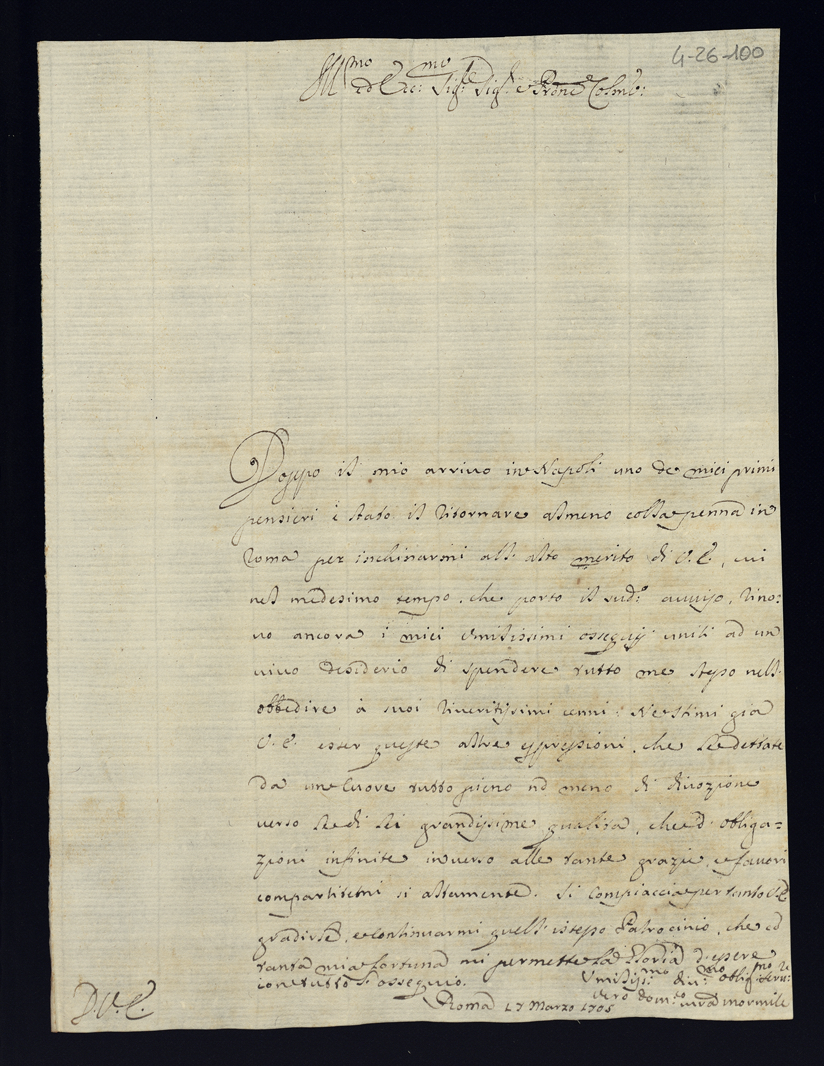 4-26-100
Ill.mo ed Ecc.mo Sig.re Sig.re e Prone Colmo:
Doppo il mio arrivo in Napoli uno de miei primi
pensieri è stato il ritornare almeno colla penna in
Roma per inchinarmi all' alto merito di V. E., cui
nel medesimo tempo, che porto il sud.o avviso, rino=
vo ancora i miei umilissimi ossequij uniti ad un
vivo desiderio di spendere tutto me stesso nell'
obbedire à suoi riveritissimi cenni: Ne stimi già
V. E. esser queste altre espressioni, che le dettate
da un Cuore tutto pieno nō meno di divozione
verso le di lei grandissime qualità, che d' obliga=
zioni infinite inverso alle tante grazie, e favori
compartitemi si altamente. Si Compiaccia per tanto V.E.
gradirle, e continuarmi quell' istesso Patrocinio, che cō
tanta mia fortuna mi permette la Gloria d' essere
con tutto l' ossequio.
D. V. E.
Umiliss.mo div.mo oblig.mo Se
Roma 17 Marzo 1705